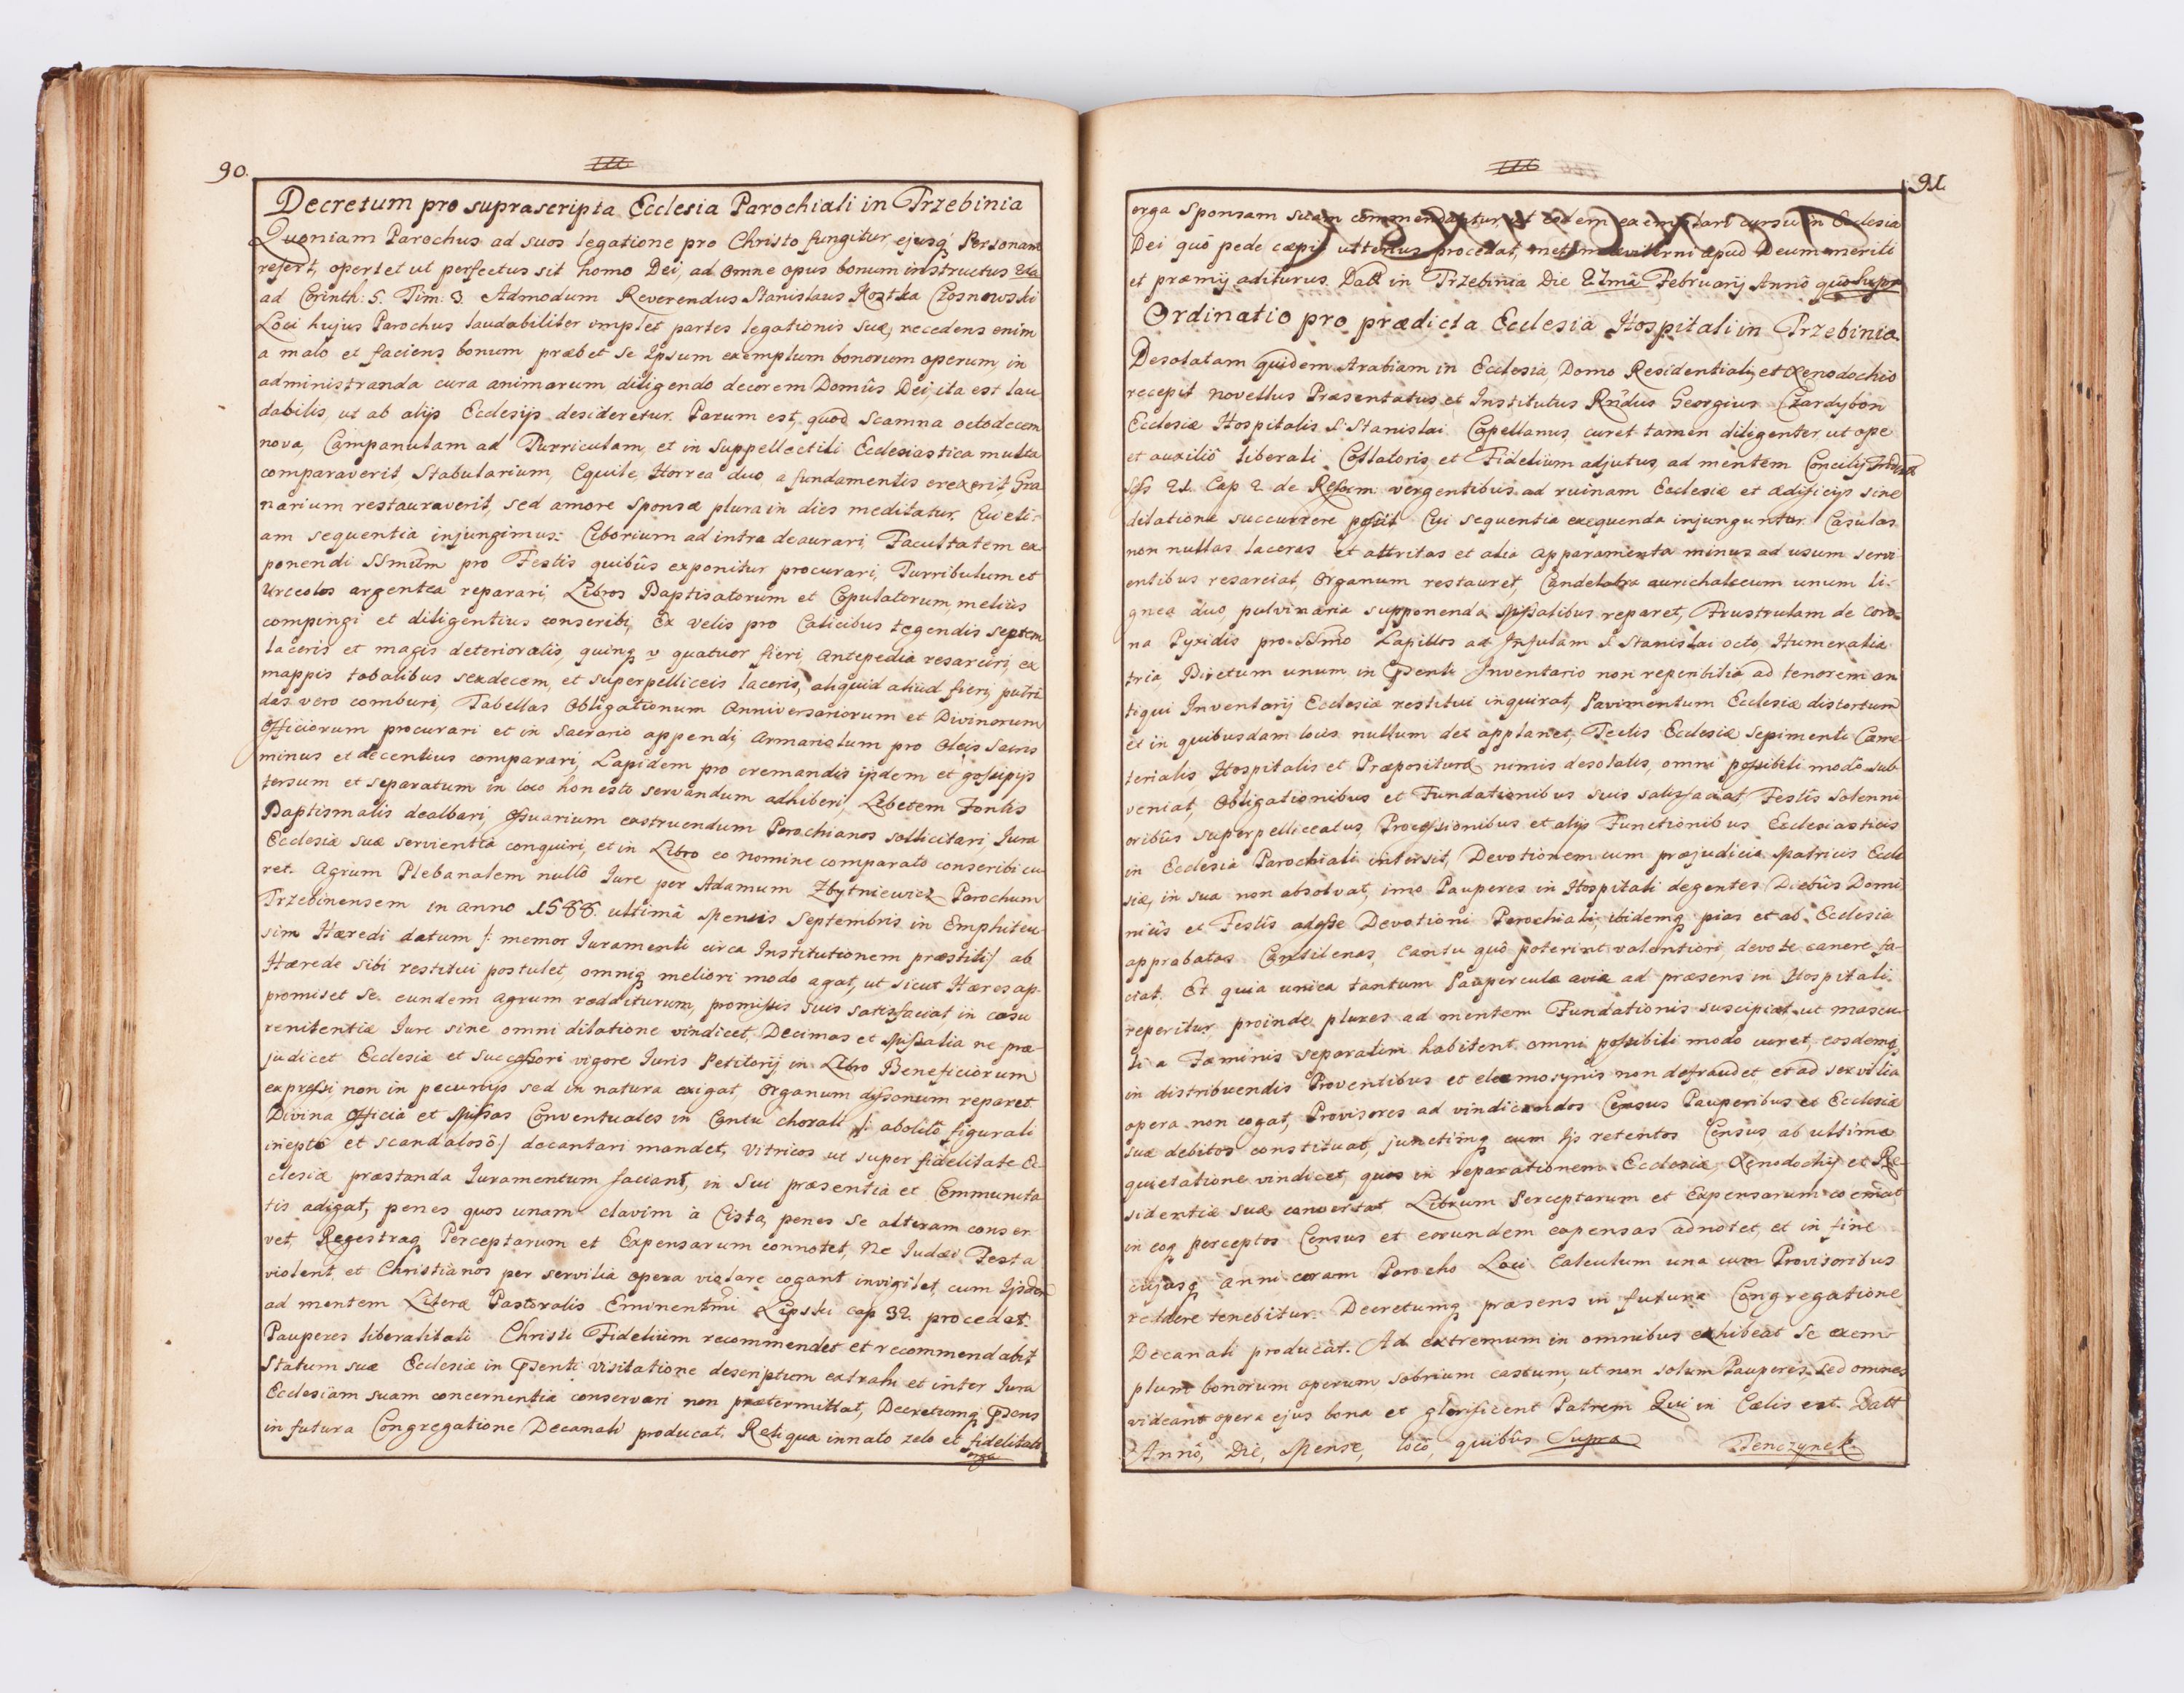 90.
116
Decretum pro suprascripta Ecclesia Parochiali in Trzebinia
Quoniam Parochus ad suos legatione pro Christo fungitur, ejusq Personam
refert, opertet ut perfectus sit homo Dei, ad omne opus bonum instructus
ad Corinth: 5. Tim: 3 Admodum Reverendus Stanislaus Kostka Czosnowski
Loci hujus Parochus laudabiliter implet partes legationis suæ, recedens enim
a malo et faciens bonum præbet se Ipsum exemplum bonorum operum, in
administranda cura animarum diligendo decorem Domûs Dei, ita est lau
dabilis, ut ab alijs Ecclesijs desideretur. Parum est, quod Scamna octodecem
nova, Campanulam ad Turriculam, et in Suppellectili Ecclesiastica multa
comparaverit, Stabularium, Equile, Horrea duo, a fundamentis erexerit, Gra
narium restauraverit, sed amore Sponsæ plura in dies meditatur. Cui eti-
am sequentia injungimus: Ciborium ad intra deaurari, Facultatem ex
ponendi SSmum pro Festis quibûs exponitur procurari, Turribulum et
Urceolos argentea reparari, Libros Baptisatorum et Copulatorum, meliùs
compingi et diligentius conscribi, Ex velis pro Calicibus tegendis septem
laceris et magis deterioratis, quinq v quatuor fieri, antepedia resarciri, ex
mappis tobalibus sexdecem, et superpelliceis laceris, aliquid aliud fieri, putri
das vero comburi, Tabellas Obligationum Anniversariorum et Divinorum
Officiorum procurari et in Sacrario appendi, Armariolum pro Oleis Sacris
minus et decentius comparari, Lapidem pro cremandis ijsdem et gossipijs
tersum et separatum in loco honesto servandum adhiberi, Lebetem Fontis
Baptismalis dealbari, Ossuarium extruendum Parochianos sollicitari, Jura
Ecclesiæ suæ servientia conquiri, et in Libro eo nomine comparato conscribi cu
ret. Agrum Plebanalem nullô Jure per Adamum Zbytniewicz Parochum
Trzebinensem in anno 1588. ultimâ Mensis Septembris in Emphiteu
sim Hæredi datum /: memor Juramenti circa Institutionem præstiti :/ ab
Hærede sibi restitui postulet, omniq meliori modo agat, ut sicut Hæres ap-
promiset se eundem agrum redditurum, promissis suis satisfaciat in casu
renitentiæ Jure sine omni dilatione vindicet, Decimas et Missalia ne præ-
judicet Ecclesiæ et Successori vigore Juris Petitorij in Libro Beneficiorum
expressi non in pecunijs sed in natura exigat, Organum dissonum reparet.
Divina Officia et Missas Conventuales in Cantu chorali /: abolitô figurali
ineptô et scandalosô :/ decantari mandet, Vitricos ut super fidelitate Ec-
clesiæ præstanda Juramentum faciant, in Sui præsentia et Communita
tis adigat, penes quos unam clavim à Cista, penes se alteram conser-
vet, Regestraq Perceptarum et Expensarum connotet, Ne Judæi Festa
violent et Christianos per servilia opera violare cogant invigilet, cum Ijsdem
ad mentem Literæ Pastoralis Eminentmi Lipski cap 32. procedat.
Pauperes liberalitati Christi Fidelium recommendet et recommendabit
Statum suæ Ecclesiæ in psenti Visitatione descriptum extrahi et inter Jura
Ecclesiam suam concernentia conservari non prætermittat, Decretumq psens
in futura Congregatione Decanali producat. Reliqua innato zelo et fidelitate
erga
116
91.
erga Sponsam suam commendantur, ut eodem exemplari cursu in Ecclesia
Dei quô pede cæpit ulterius procedat, apud Deum meriti
et præmij aditurus. Datt in Trzebinia Die 27mâ Februarij Annô quô Supra
Ordinatio pro prædicta Ecclesia Hospitali in Trzebinia.
Desolatam quidem Arabiam in Ecclesia, Domo Residentiali, et Xenodochio
recepit novellus Præsentatus et Institutus Rndus Georgius Czardybon
Ecclesiæ Hospitalis S. Stanislai Capellanus, curet tamen diligenter, ut ope
et auxiliô liberali Collatoris, et Fidelium adjutus, ad mentem Concilij
Sess 21. Cap 2 de Reform: vergentibus ad ruinam Ecclesiæ et ædificijs sine
dilatione succurrere possit. Cui sequentia exequenda injunguntur. Casulas
non nullas laceras et attritas et alia apparamenta minus ad usum servi
entibus resarciat, Organum restauret, Candelabra aurichalceum unum li-
gnea duo, pulvinaria supponenda Missalibus reparet, Frustulam de coro-
na Pyxidis pro SSmo Lapillos ad Infulam S. Stanislai octo, Humeralia
tria, Biretum unum in psenti Inventario non reperibilia ad tenorem an
tiqui Inventarij Ecclesiæ restitui inquirat, Pavimentum Ecclesiæ distortum
et in quibusdam locis nullum det applanet, Tectis Ecclesiæ Sepimenti Cæme
terialis, Hospitalis et Præpositurâ nimis desolatis, omni possibili modô sub
veniat, Obligationibus et Fundationibus suis satisfaciat, Festis Solenni
oribûs superpelliceatus, Processionibus et alijs Functionibus Ecclesiasticis
in Ecclesia Parochiali intersit, Devotionem cum præjudicio Matricis Eccle
siæ, in sua non absolvat, imo Pauperes in Hospitali degentes Diebûs Domi
nicis et Festis adesse Devotioni Parochiali, ibidemq pias et ab Ecclesia
approbatas Cantilenas, Cantu quô poterint valentiori, devote canere fa-
ciat. Et quia unica tantum Paupercula avia ad præsens in Hospitali
reperitur, proinde plures ad mentem Fundationis suscipiat, ut mascu-
li a Fæminis separatim habitent omni possibili modô curet, eosdemq
in distribuendis Proventibus et eleemosynis non defraudet, et ad servilia
opera non cogat, Provisores ad vindicandos Census Pauperibus et Ecclesiæ
suæ debitos constituat, junctimq cum Ijs retentos Census ab ultima
quietatione vindicet, quos in reparationem Ecclesiæ, Xenodochij et Re-
sidentiæ suæ convertat. Librum Perceptarum et Expensarum coemat
in eoq perceptos Census et eorundem expensas adnotet, et in fine
cujusq anni coram Parocho Loci Calculum una cum Provisoribus
reddere tenebitur. Decretumq præsens in futura Congregatione
Decanali producat. Ad extremum in omnibus exhibeat se exem-
plum bonorum operum, sobrium castum, ut non solum Pauperes, sed omnes
videant opera ejus bona et glorificent Patrem Qui in Cælis est. Datt
Annô, Die, Mense, locô, quibûs Supra
Tenczynek.